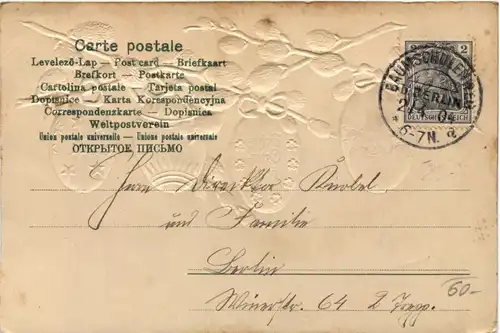 Carte postale
Levelező-Lap — Post card — Briefkaart
Brefkort — Postkarte
Cartolina postale — Tarjeta postal
Dopisnice — Karta Korespondencyjna
Correspondenzkarte — Dopisnica
Weltpostverein
Union postale universelle — Unione postale universale
ОТКРЫТОЕ ПИСЬМО
2 2
DEUTSCHES REICH
BERLIN
04
6-7N.
Herrn Direktor Knobel
und Familie
Berlin
Wienerstr. 64 2 Trepp.
60-